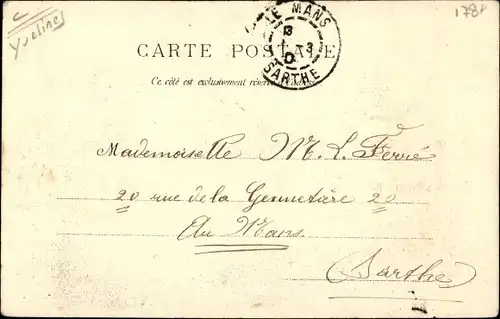 C
Yveline
178
LE MANS
13
SARTHE
CARTE POSTALE
Ce côté est exclusivement réservé
Mademoiselle M. L. Ferré
20 rue de la Gennetière 20
Au Mans
Sarthe